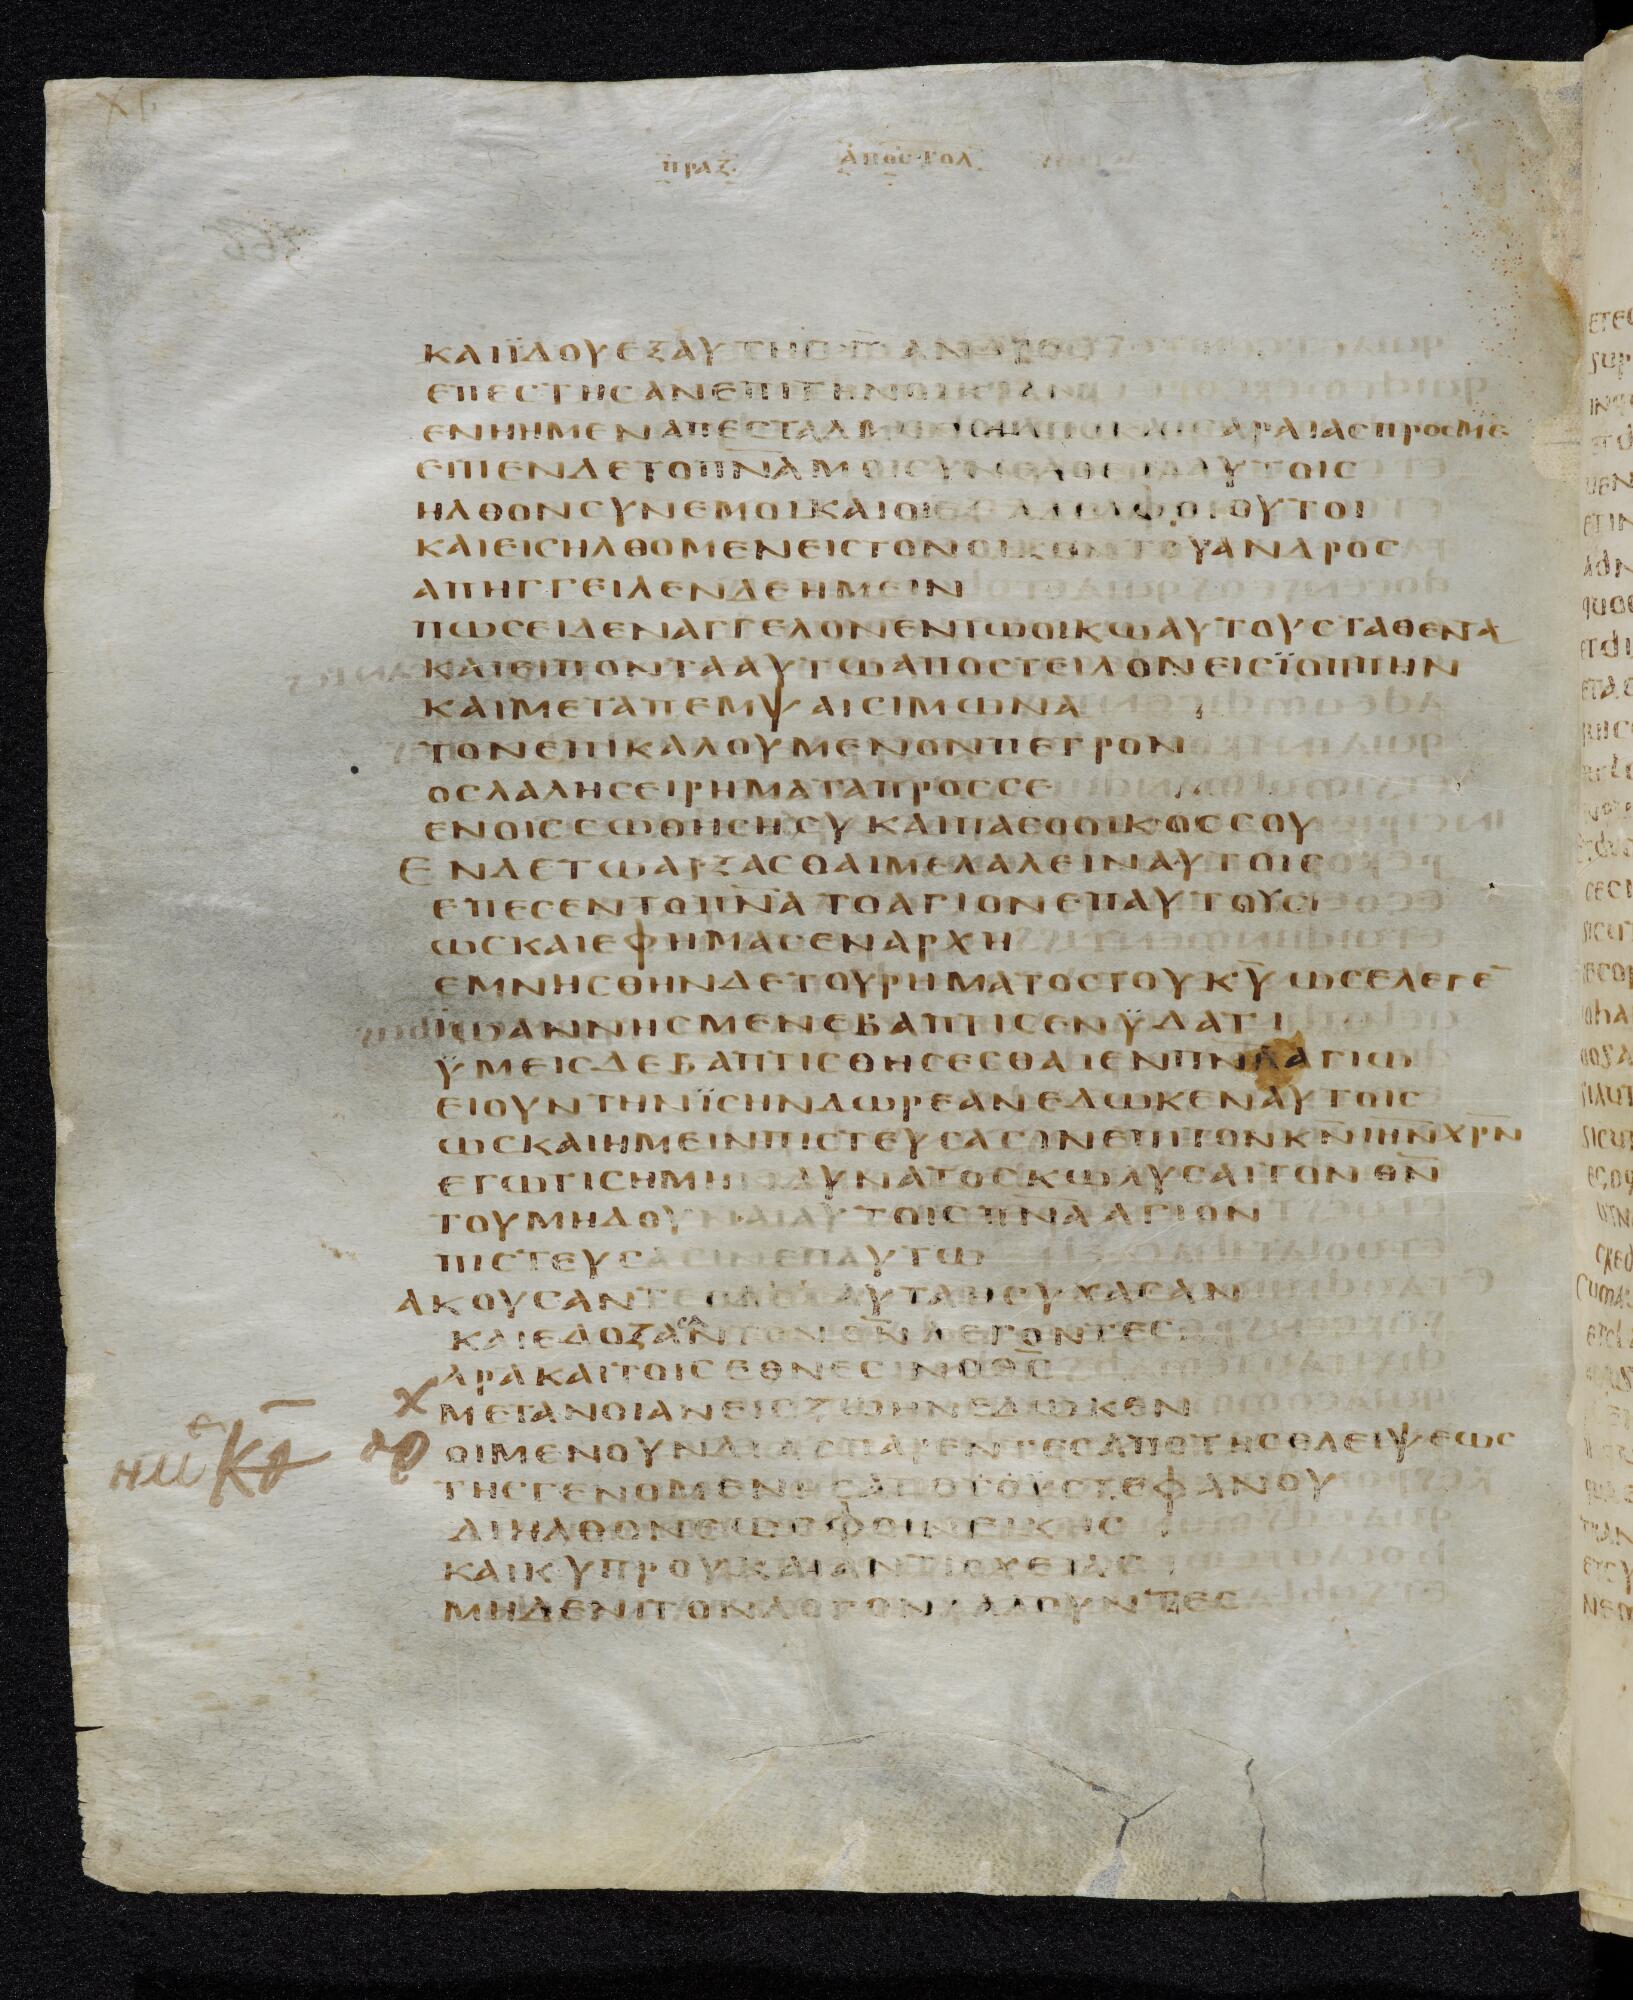 πραξ. αποστολ
ΚΑΙΪΔΟΥΕΞΑΥΤΗϹ·Γ̅ΑΝΔΡΕϹ
ΕΠΕϹΤΗϹΑΝΕΠΙΤΗΝΟΙΚΙΑΝ
ΕΝΗΗΜΕΝΑΠΕϹΤΑΛΜΕΝΟΙΑΠΟΚΑΙϹΑΡΑΙΑϹΠΡΟϹΜΕ
ΕΙΠΕΝΔΕΤΟΠ̅Ν̅ΑΜΟΙϹΥΝΕΛΘΕΙΝΑΥΤΟΙϹ
ΗΛΘΟΝϹΥΝΕΜΟΙΚΑΙΟΙΕΞΑΔΕΛΦΟΙΟΥΤΟΙ
ΚΑΙΕΙϹΗΛΘΟΜΕΝΕΙϹΤΟΝΟΙΚΟΝΤΟΥΑΝΔΡΟϹ
ΑΠΗΓΓΕΙΛΕΝΔΕΗΜΕΙΝ
ΠΩϹΕΙΔΕΝΑΓΓΕΛΟΝΕΝΤΩΟΙΚΩΑΥΤΟΥϹΤΑΘΕΝΤΑ
ΚΑΙΕΙΠΟΝΤΑΑΥΤΩΑΠΟϹΤΕΙΛΟΝΕΙϹΪΟΠΠΗΝ
ΚΑΙΜΕΤΑΠΕΜΨΑΙϹΙΜΩΝΑ
ΤΟΝΕΠΙΚΑΛΟΥΜΕΝΟΝΠΕΤΡΟΝ
ΟϹΛΑΛΗϹΕΙΡΗΜΑΤΑΠΡΟϹϹΕ
ΕΝΟΙϹϹΩΘΗϹΗϹΥΚΑΙΠΑϹΟΟΙΚΟϹϹΟΥ
ΕΝΔΕΤΩΑΡΞΑϹΘΑΙΜΕΛΑΛΕΙΝΑΥΤΟΙϹ
ΕΠΕϹΕΝΤΟΠ̅Ν̅ΑΤΟΑΓΙΟΝΕΠΑΥΤΟΥϹ
ΩϹΚΑΙΕΦΗΜΑϹΕΝΑΡΧΗ
ΕΜΝΗϹΘΗΝΔΕΤΟΥΡΗΜΑΤΟϹΤΟΥΚ̅ΥΩϹΕΛΕΓΕ̅
ΪΩΑΝΝΗϹΜΕΝΕΒΑΠΤΙϹΕΝΫΔΑΤΙ
ΫΜΕΙϹΔΕΒΑΠΤΙϹΘΗϹΕϹΘΑΙΕΝΠΝΙΑΓΙΩ
ΕΙΟΥΝΤΗΝΪϹΗΝΔΩΡΕΑΝΕΔΩΚΕΝΑΥΤΟΙϹ
ΩϹΚΑΙΗΜΕΙΝΠΙϹΤΕΥϹΑϹΙΝΕΠΙΤΟΝΚ̅ΝΙΗ̅ΝΧΡ̅Ν
ΕΓΩΤΙϹΗΜΗΝΔΥΝΑΤΟϹΚΩΛΥϹΑΙΤΟΝΘ̅Ν
ΤΟΥΜΗΔΟΥΝΑΙΑΥΤΟΙϹΠ̅Ν̅ΑΑΓΙΟΝ
ΠΙϹΤΕΥϹΑϹΙΝΕΠΑΥΤΩ
ΑΚΟΥϹΑΝΤΕϹΔΕΤΑΥΤΑΗϹΥΧΑϹΑΝ
ΚΑΙΕΔΟΞΑϹΑΝΤΟΝΘ̅ΝΛΕΓΟΝΤΕϹ
ΑΡΑΚΑΙΤΟΙϹΕΘΝΕϹΙΝΟΘ̅Ϲ
ΜΕΤΑΝΟΙΑΝΕΙϹΖΩΗΝΕΔΩΚΕΝ
ΟΙΜΕΝΟΥΝΔΙΑϹΠΑΡΕΝΤΕϹΑΠΟΤΗϹΘΛΕΙΨΕΩϹ
ΤΗϹΓΕΝΟΜΕΝΗϹΑΠΟΤΟΥϹΤΕΦΑΝΟΥ
ΔΙΗΛΘΟΝΕΩϹΦΟΙΝΕΙΚΗϹ
ΚΑΙΚΥΠΡΟΥΚΑΙΑΝΤΙΟΧΕΙΑϹ
ΜΗΔΕΝΙΤΟΝΛΟΓΟΝΛΑΛΟΥΝΤΕϹ